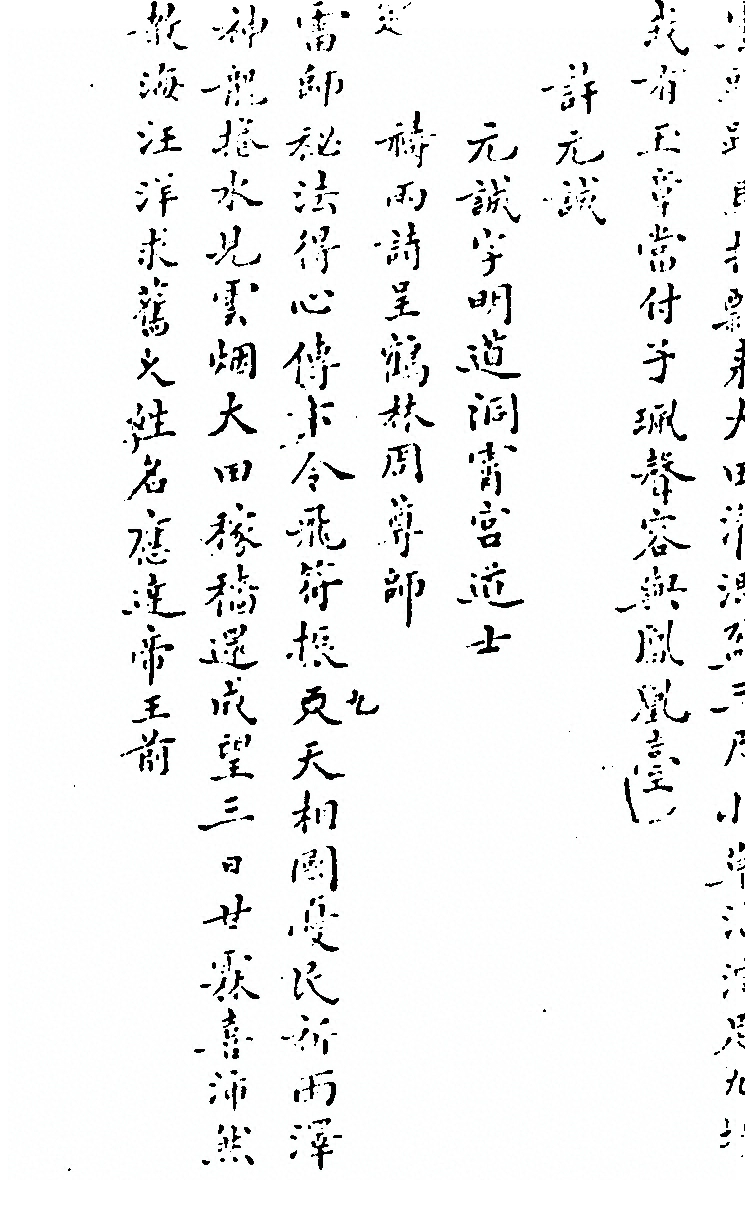 我有玉章當付子珮聲容與鳳凰臺
許元誠
元誠字明道洞霄宮道士
禱雨詩呈鶴林周尊師
雷師秘法得心傳令飛符振九天相國憂民祈雨澤
神龍捲水見雲烟大田稼穡還成望三日甘霖喜沛然
海汪洋求舊姓名應達帝王前